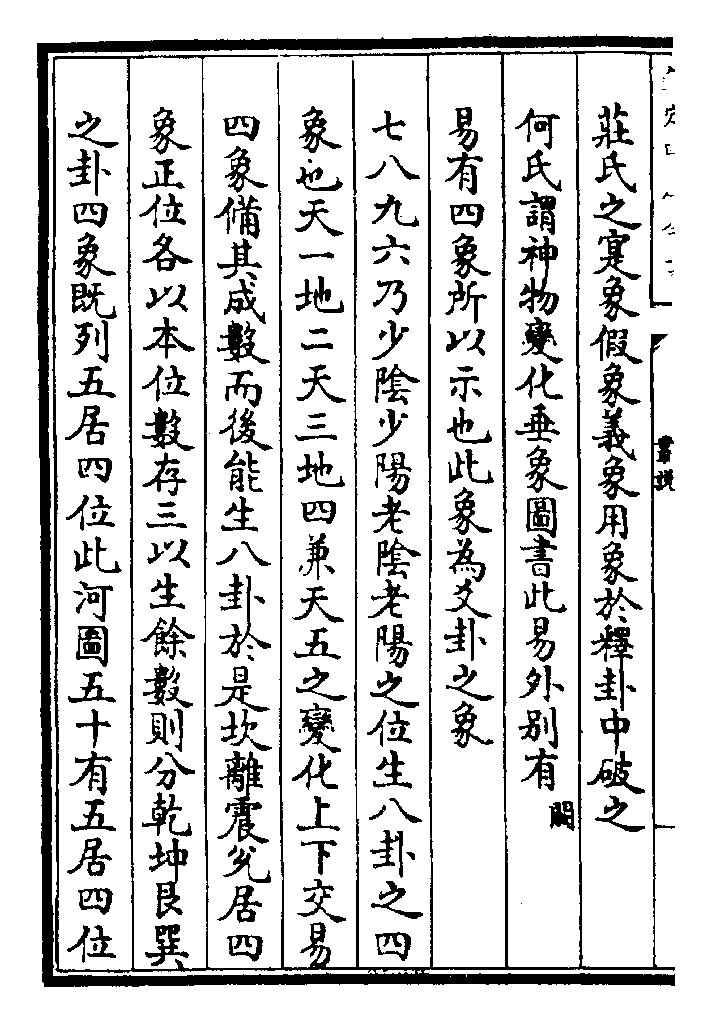 莊氏之寔象假象義象用象於釋卦中破之
何氏謂神物變化垂象圖書此易外别有闕
易有四象所以示也此象為爻卦之象
七八九六乃少陰少陽老陰老陽之位生八卦之四
象也天一地二天三地四兼天五之變化上下交易
四象備其成數而後能生八卦於是坎離震兊居四
象正位各以本位數存三以生餘數則分乾坤艮巽
之卦四象既列五居四位此河圖五十有五居四位